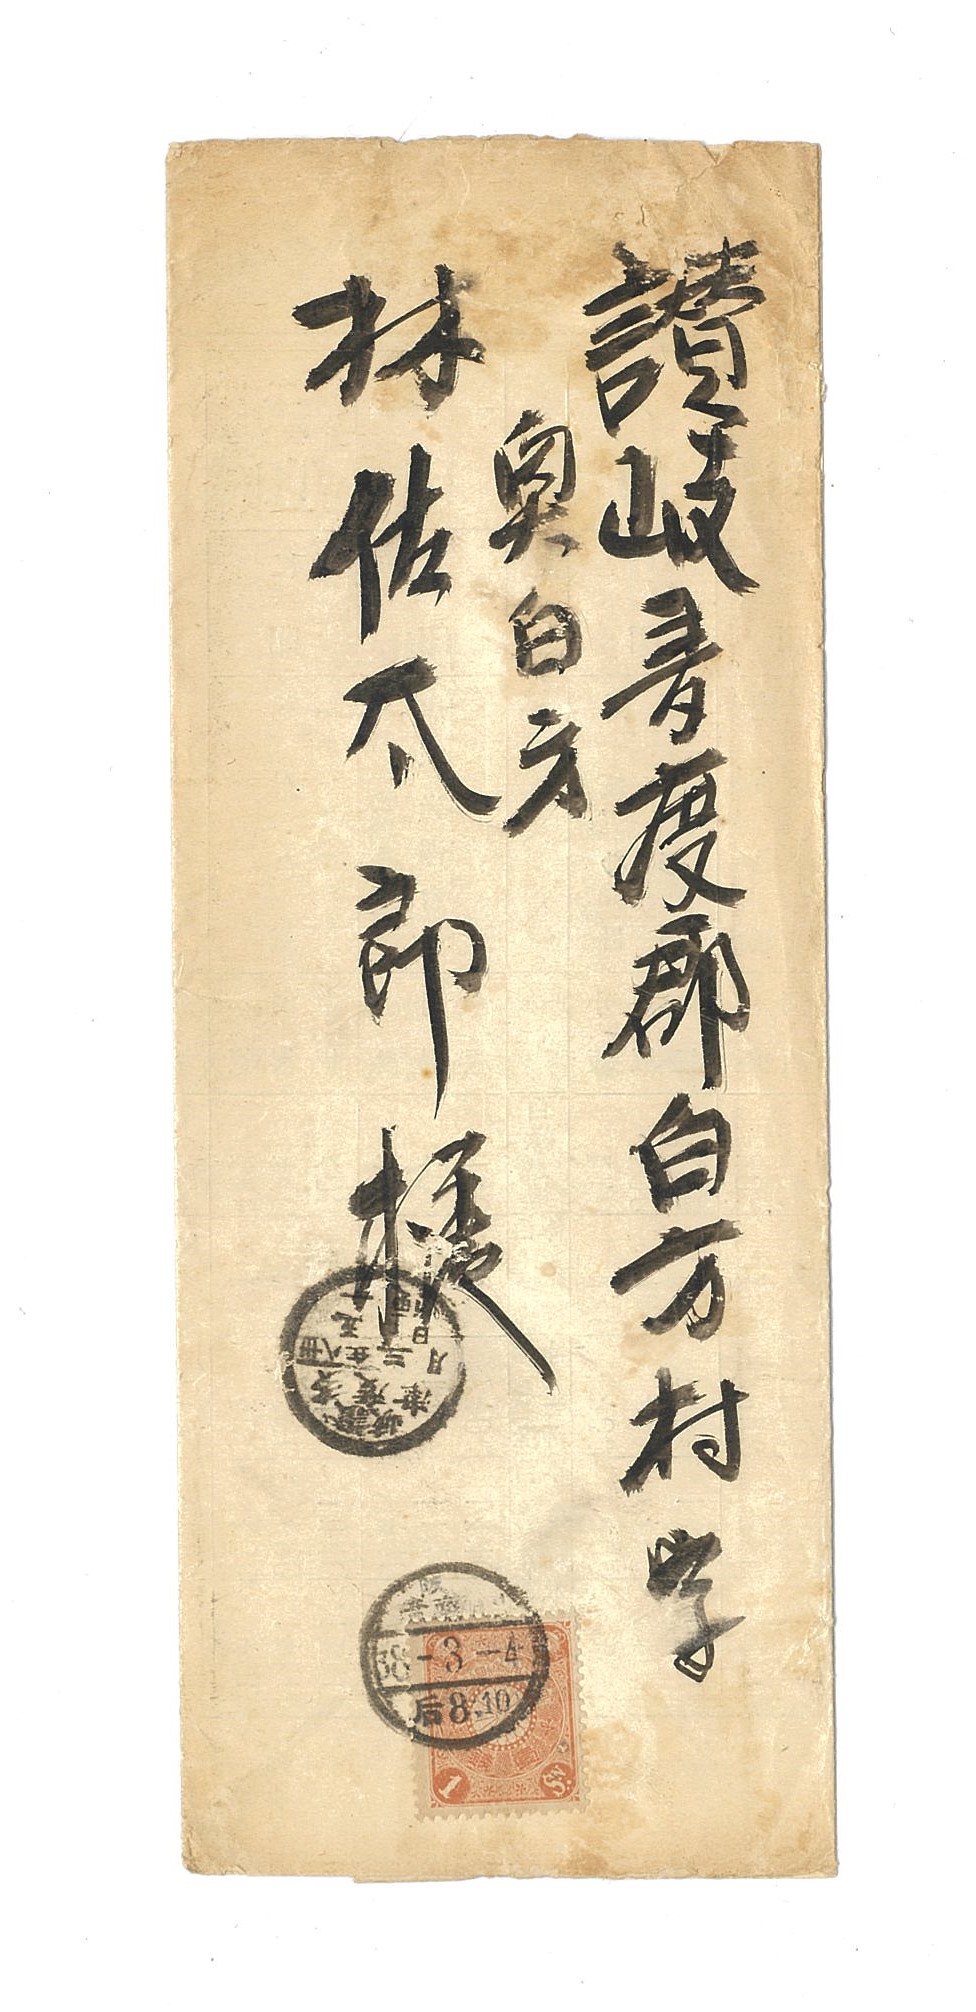 讃岐多度郡白方村字
奥白方
林佐太郎様
38-3-4
后8.10
1 Sn